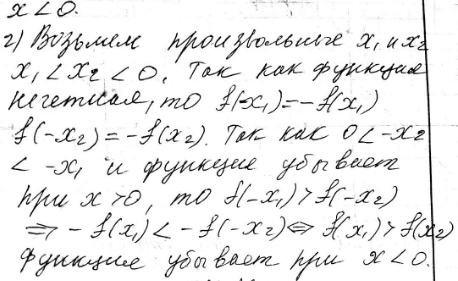 x < 0.
г) Возьмем произвольные x₁ и x₂
x₁ < x₂ < 0. Так как функция
нечетная, то f(-x₁) = -f(x₁)
f(-x₂) = -f(x₂). Так как 0 < -x₂
< -x₁ и функция убывает
при x > 0, то f(-x₁) > f(-x₂)
⇒ -f(x₁) < -f(-x₂) ⇔ f(x₁) > f(x₂)
Функция убывает при x < 0.